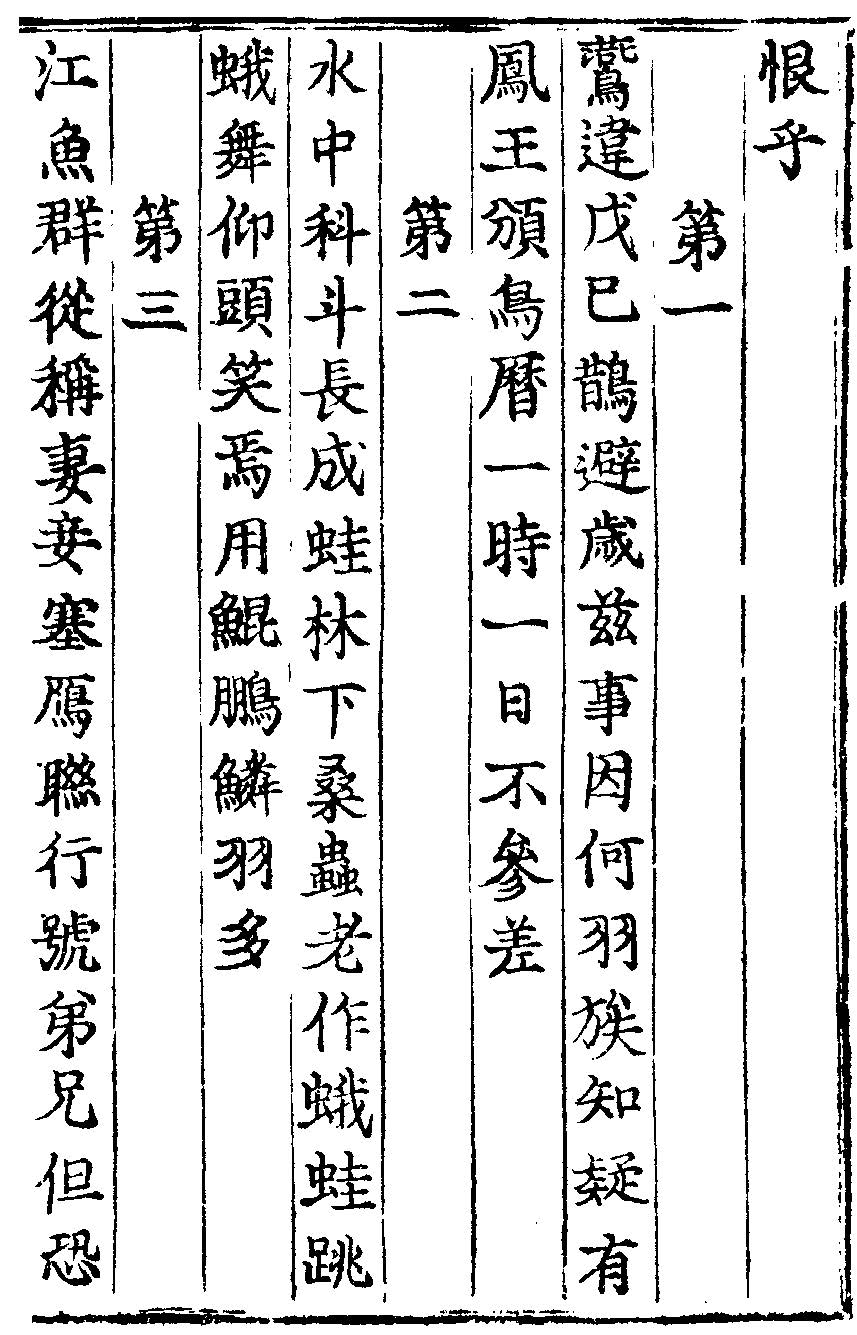 恨乎
第一
鷰違戊巳鵲避歲茲事因何羽族知疑有
鳳王頒鳥曆一時一日不參差
第二
水中科斗長成蛙林下桑蟲老作蛾蛙跳
蛾舞仰頭笑焉用鯤鵬鱗羽多
第三
江魚群從稱妻妾塞鴈聯行號弟兄但恐